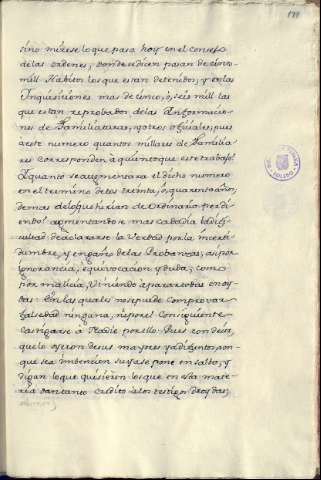 sino mirese lo que pasa hoy en el consejo
de las ordenes, donde dicen pasan de cinco
mill Habitos los que estan detenidos, y en las
Inquisiciones mas de cinco, ó, seis mill las
que estan reprobados de las Informacio-
nes de familiaturas, y otros oficiales; pues
a este numero quantos millares de familia-
res corresponden à quien toque este trabajo?
Y quanto se augmentara el dicho numero
en el termino de los treinta, ò, quarenta años,
demas de los que hirian de Ordinario per di-
endo? augmentandose mas cada dia la difi-
cultad de aclararse la Verdad por la incerti-
dumbre, y engaño de las Probanzas, asi por
ignorancia, equivocacion y duda, como
por malicia, Viniendo a parar todas en oy-
das: En las quales no se puede comprovar
falsedad ninguna, ni por el Consiguiente
Castigarse à Nadie por ello: Pues con decir,
que lo oyeron de sus mayores ya difuntos, aun-
que sea imbencion suya se pone en salvo, y
digan lo que quisieren los que en esta mate-
ria dan tanto Credito a los testigos de oydas,